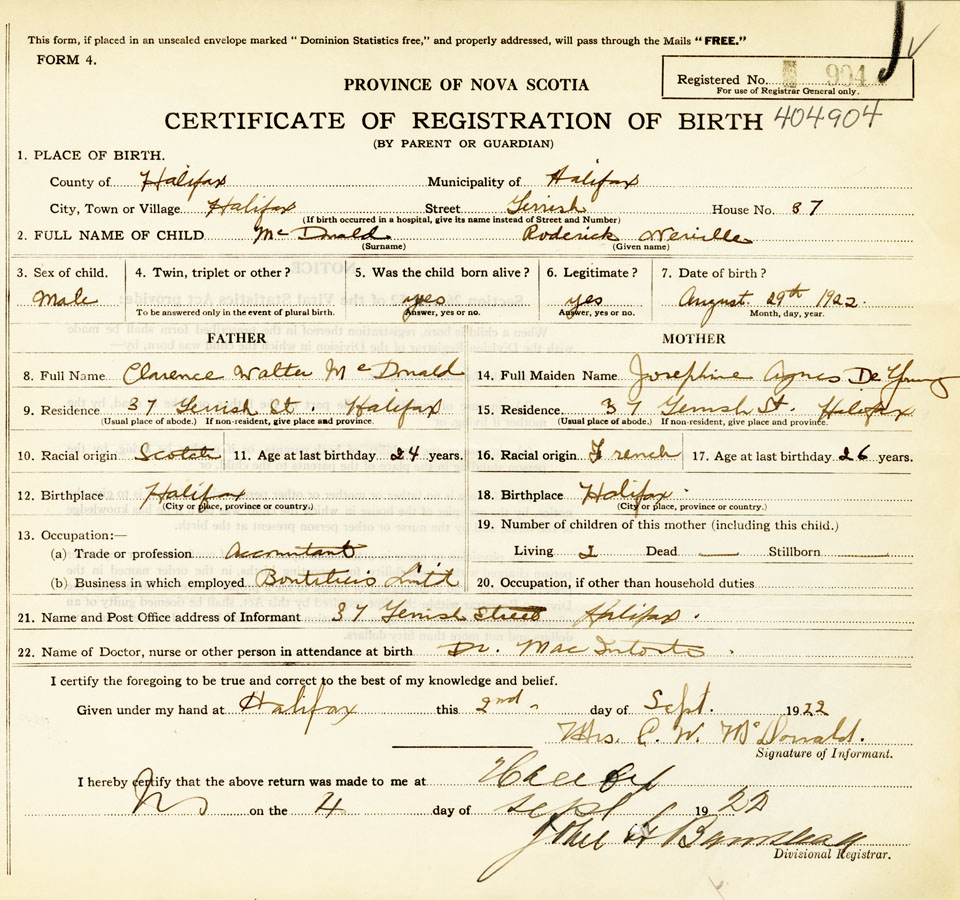 This form, if placed in an unsealed envelope marked " Dominion Statistics free," and properly addressed, will pass through the Mails "FREE."
FORM 4.
PROVINCE OF NOVA SCOTIA
Registered No. 904
For use of Registrar General only.
CERTIFICATE OF REGISTRATION OF BIRTH 404904
(BY PARENT OR GUARDIAN)
1. PLACE OF BIRTH.
County of Halifax Municipality of Halifax
City, Town or Village Halifax Street Gerrish House No. 37
(If birth occurred in a hospital, give its name instead of Street and Number)
2. FULL NAME OF CHILD McDonald Roderick Neville
(Surname) (Given name)
3. Sex of child. 4. Twin, triplet or other? 5. Was the child born alive? 6. Legitimate? 7. Date of birth?
Male yes yes August 29th 1922.
To be answered only in the event of plural birth. Answer, yes or no. Answer, yes or no. Month, day, year.
FATHER MOTHER
8. Full Name Clarence Walter McDonald 14. Full Maiden Name Josephine Agnes De Young
9. Residence 37 Gerrish St. Halifax 15. Residence 37 Gerrish St. Halifax
(Usual place of abode.) If non-resident, give place and province. (Usual place of abode.) If non-resident, give place and province.
10. Racial origin Scotch 11. Age at last birthday 24 years. 16. Racial origin French 17. Age at last birthday 26 years.
12. Birthplace Halifax 18. Birthplace Halifax
(City or place, province or country.) (City or place, province or country.)
19. Number of children of this mother (including this child.)
13. Occupation:—
(a) Trade or profession Accountant Living Dead — Stillborn —
(b) Business in which employed 20. Occupation, if other than household duties
21. Name and Post Office address of Informant 37 Gerrish Street Halifax.
22. Name of Doctor, nurse or other person in attendance at birth Dr. Mac Intosh.
I certify the foregoing to be true and correct to the best of my knowledge and belief.
Given under my hand at Halifax this 2nd day of Sept. 1922
Mrs. C. W. McDonald.
Signature of Informant.
I hereby certify that the above return was made to me at
NS on the 4 day of Sept 1922
John
Divisional Registrar.